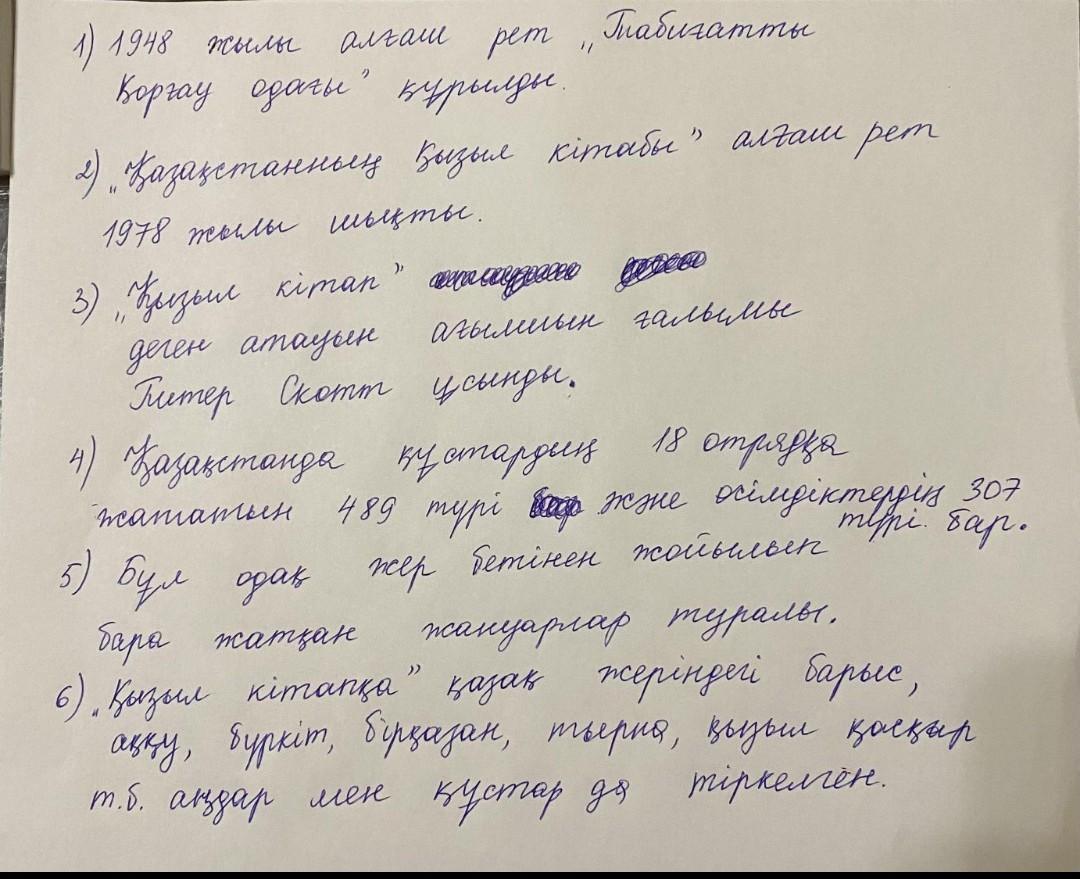 1) 1948 жылы алғаш рет „Табиғатты
Қорғау одағы” құрылды.
2) „Қазақстанның Қызыл кітабы” алғаш рет
1978 жылы шықты.
3) „Қызыл кітап”
деген атауын ағылшын ғалымы
Питер Скотт ұсынды.
4) Қазақстанда құстардың 18 отрядқа
жататын 489 түрі және өсімдіктердің 307
түрі бар.
5) Бұл одақ жер бетінен жойылып
бара жатқан жануарлар туралы.
6) „Қызыл кітапқа” қазақ жеріндегі барыс,
аққу, бүркіт, бірқазан, тырна, қызыл қасқыр
т.б. аңдар мен құстар да тіркелген.